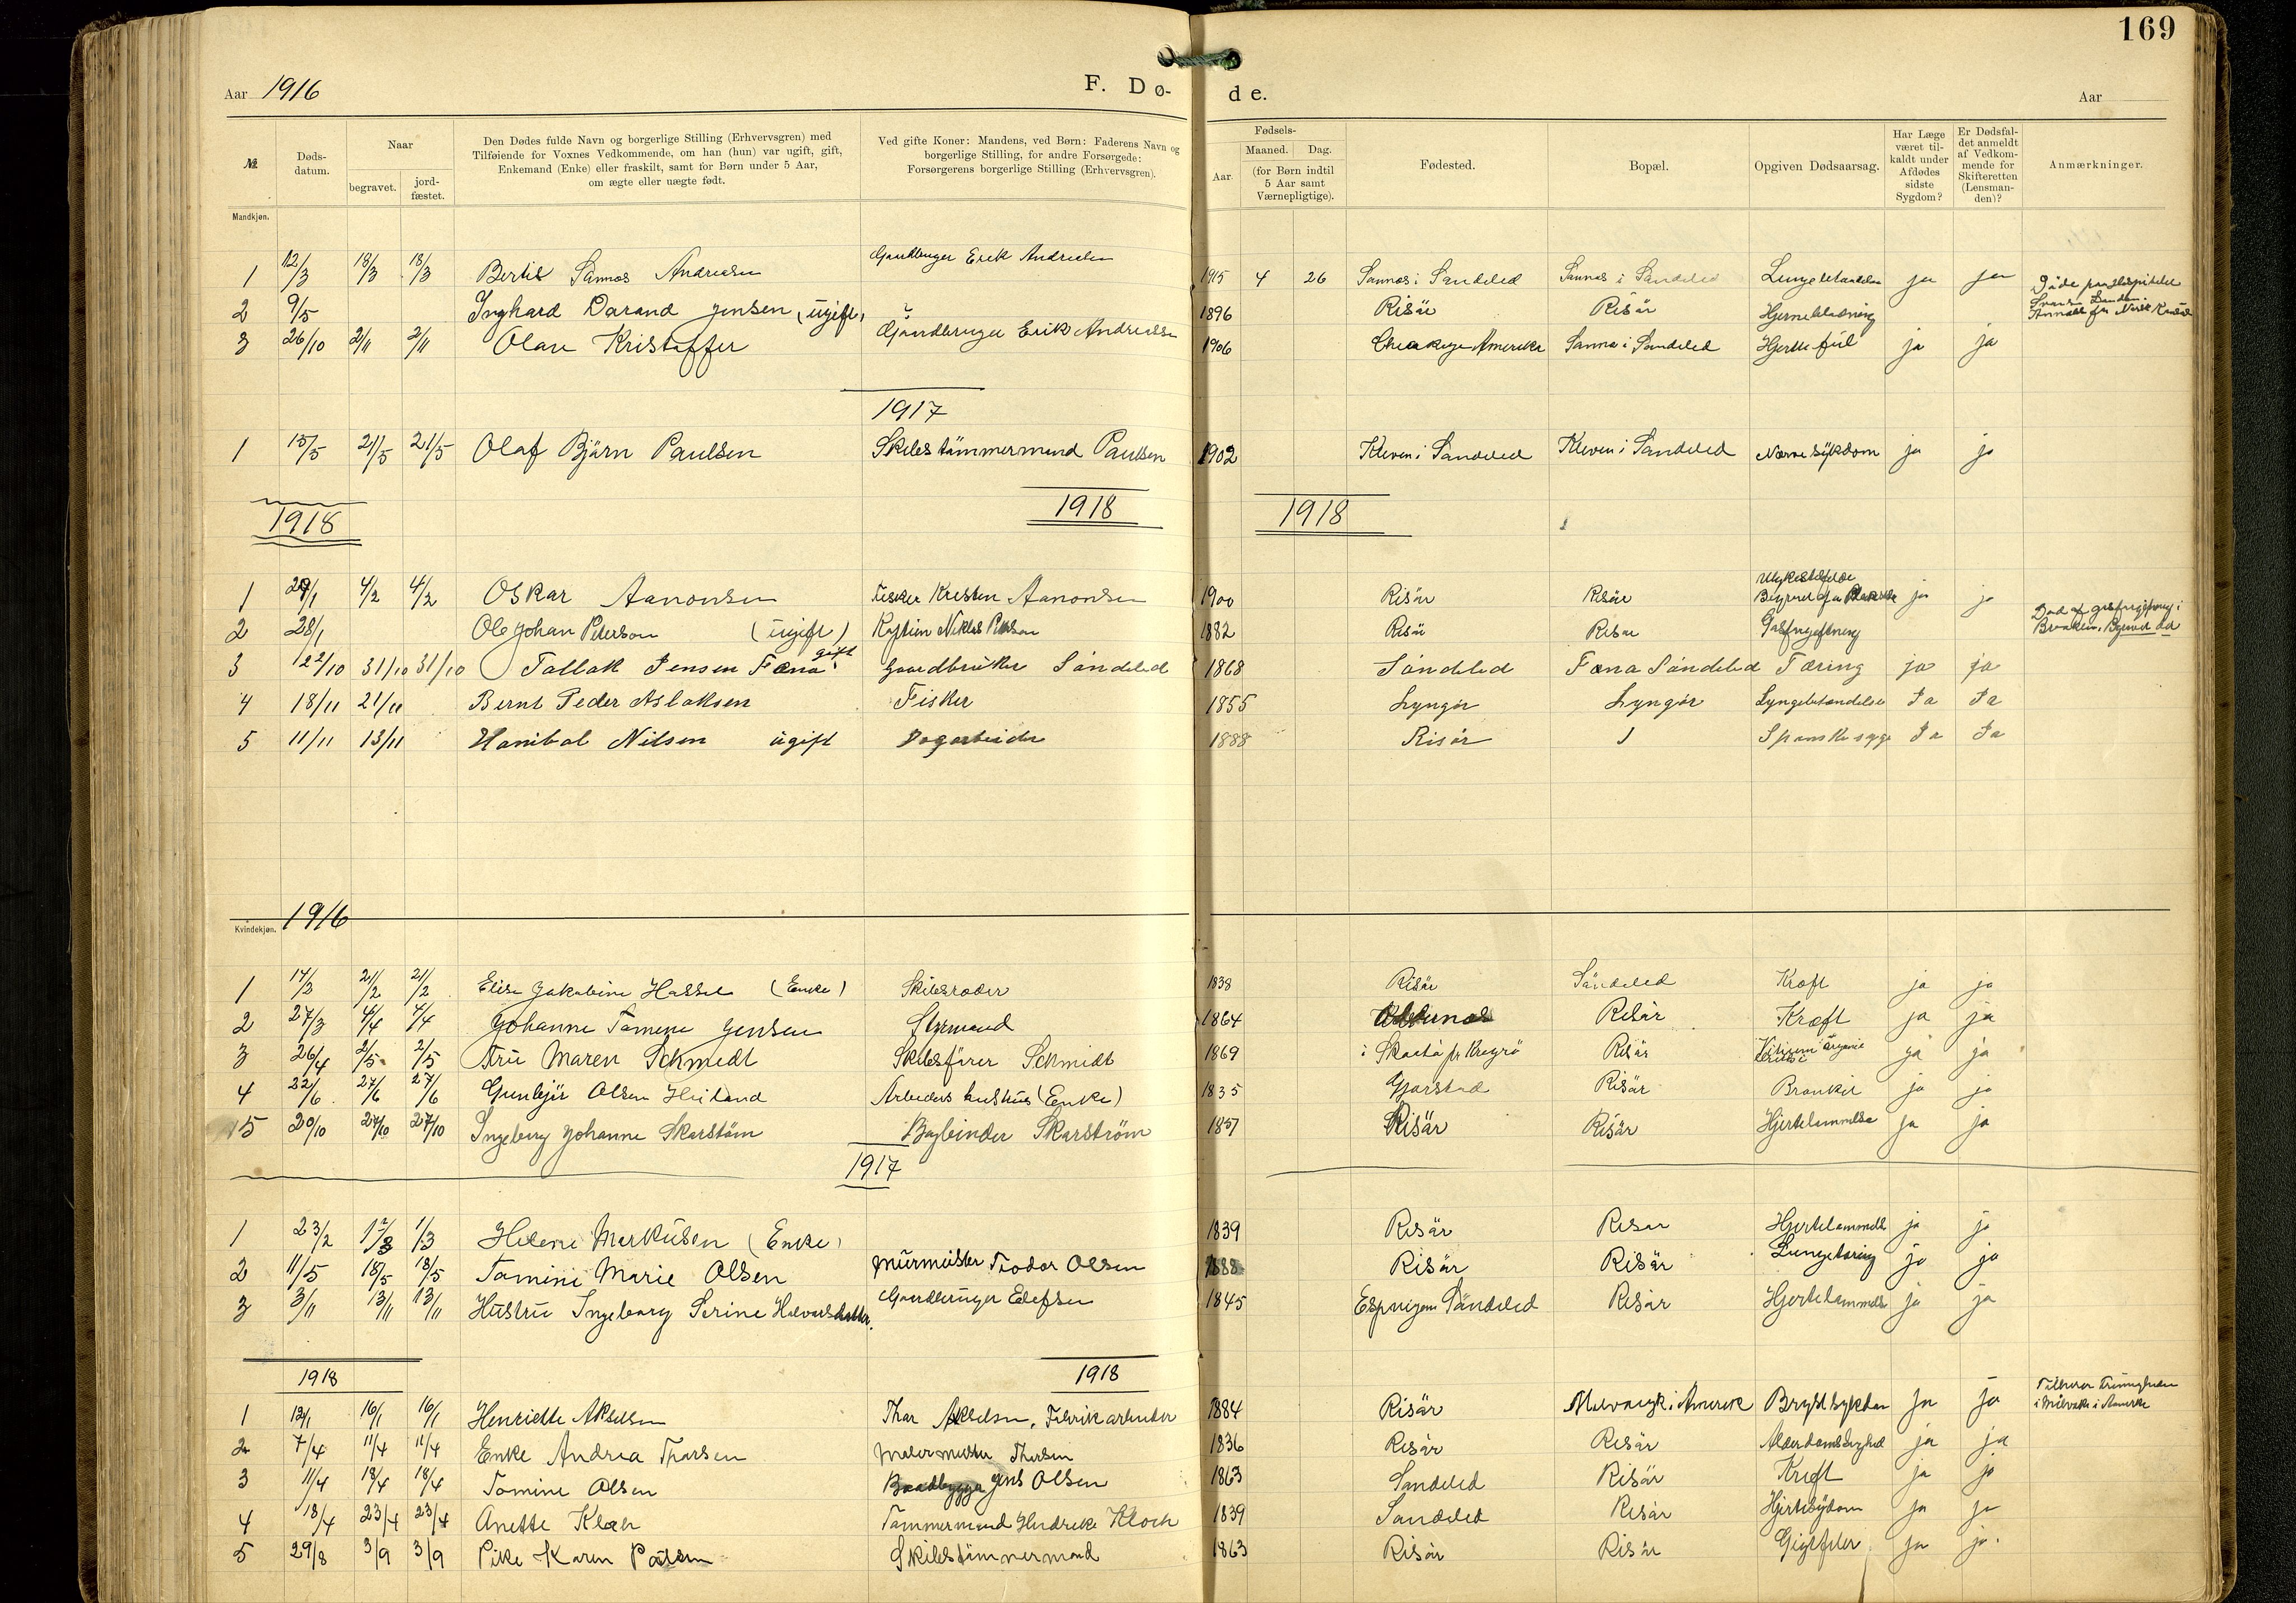 169
Aar 1916 F. Dø- de. Aar
№
Døds-
datum.
Naar
begravet.
jord-
fæstet.
Den Dødes fulde Navn og borgerlige Stilling (Erhvervsgren) med
Tilføiende for Voxnes Vedkommende, om han (hun) var ugift, gift,
Enkemand (Enke) eller fraskilt, samt for Børn under 5 Aar,
om ægte eller uægte født.
Ved gifte Koner: Mandens, ved Børn: Faderens Navn og
borgerlige Stilling, for andre Forsørgede:
Forsørgerens borgerlige Stilling (Erhvervsgren).
Fødsels-
Aar.
Maaned. Dag.
(for Børn indtil
5 Aar samt
Værnepligtige).
Fødested.
Bopæl.
Opgiven Dødsaarsag.
Har Læge
været til-
kaldt under
Afdødes
sidste
Sygdom?
Er Dødsfal-
det anmeldt
af Vedkom-
mende for
Skifteretten
(Lensman-
den)?
Anmærkninger.
Mandkjøn.
1 12/3 18/3 18/3 Bertil Sannes Andreasen Gaardbruger Erik Andreasen 1915 4 26 Sannes i Søndeled Sannes i Søndeled Lungebetændelse ja ja
2 9/5 Inghard Jensen (ugift) 1896 Risør Risør Hjerneblødning
3 26/10 2/11 2/11 Olav Kristoffer Gaardbruger Erik Andreassen 1906 Amerika Sannes i Søndeled Hjertefeil ja ja
1917
1 15/5 21/5 21/5 Olaf Bjørn Paulsen Skibstømmermand Paulsen 1902 Kleven i Søndeled Kleven i Søndeled Nervesykdom ja ja
1918 1918 1918
1 4/2 4/2 Oskar Aanonsen Fisker Kristen Aanonsen 1900 Risør Risør ja ja
2 28/1 Ole Johan Peterson (ugift) Kaptein Niklas Peterson 1882 Risør Risør Gasforgiftning
3 22/10 31/10 31/10 Tallak Jensen Fæna gift Gaardbruker Søndeled 1868 Søndeled Fæna Søndeled Tæring ja ja
4 18/11 21/11 Bernt Peder Aslaksen Fisker 1855 Lyngør Lyngør Lungebetændelse Ja Ja
5 11/11 13/11 Hanibal Nilsen ugift Dagarbeider 1888 Risør Spanskesyge Ja Ja
1916
Kvindekjøn.
1 14/2 21/2 21/2 Elise Jakobine Hassel (Enke) Skibsreder 1838 Risør Søndeled Kræft ja ja
2 27/3 4/4 4/4 Johanne Tomine Jensen Styrmand 1864 Risør Kræft ja ja
3 26/4 2/5 2/5 Fru Maren Schmidt Skibsfører Schmidt 1869 i Skaatø pr Kragerø Risør ja ja
4 22/6 27/6 27/6 Gunbjør Olsen Heiland Arbeiders hustru (Enke) 1835 Gjerstad Risør Bronkit ja ja
5 20/10 27/10 27/10 Ingeborg Johanne Skarstøm Bogbinder Skarström 1857 Risør Risør Hjertelammelse ja ja
1917
1 23/2 1/3 1/3 Helene Markusen (Enke) 1839 Risør Risør Hjertelammelse ja ja
2 11/5 18/5 18/5 Tomine Marie Olsen Murmester Teodor Olsen 1888 Risør Risør Lungetæring ja ja
3 3/11 13/11 13/11 Hustru Ingeborg Serine Halvorsdatter Gaardbruger Edefsen 1845 Søndeled Risør Hjertelammelse ja ja
1918 1918
1 16/1 16/1 Henriette Akselsen Thor Akselsen, Fabrikarbeider 1884 Risør Brystsykdom ja ja
2 7/4 11/4 11/4 Enke Andrea Thorsen Malermester Thorsen 1836 Risør Risør Alderdomssvaghed ja ja
3 11/4 18/4 18/4 Tomine Olsen Baadbygger Jens Olsen 1863 Søndeled Risør Kræft ja ja
4 18/4 23/4 23/4 Anette Kloch Tømmermand Hendrik Kloch 1839 Søndeled Risør Hjertesydom ja ja
5 29/8 3/9 3/9 Pike Karen Skibstømmermand 1863 Risør Risør ja ja